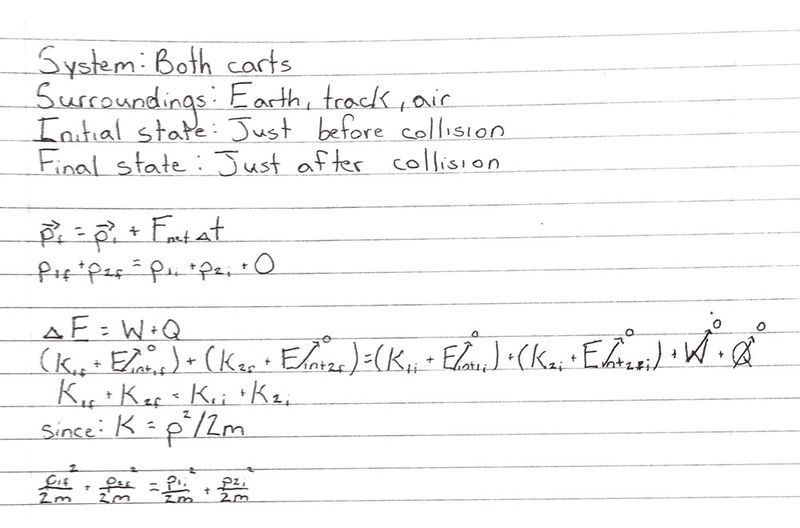 System: Both carts
Surroundings: Earth, track, air
Initial state: Just before collision
Final state: Just after collision
p⃗f = p⃗i + Fnet Δt
p1f + p2f = p1i + p2i + 0
ΔE = W + Q
(K1f + Eint1f→0) + (K2f + Eint2f→0) = (K1i + Eint1i→0) + (K2i + Eint2i→0) + W→0 + Q→0
K1f + K2f = K1i + K2i
since: K = p²/2m
p1f²/2m + p2f²/2m = p1i²/2m + p2i²/2m